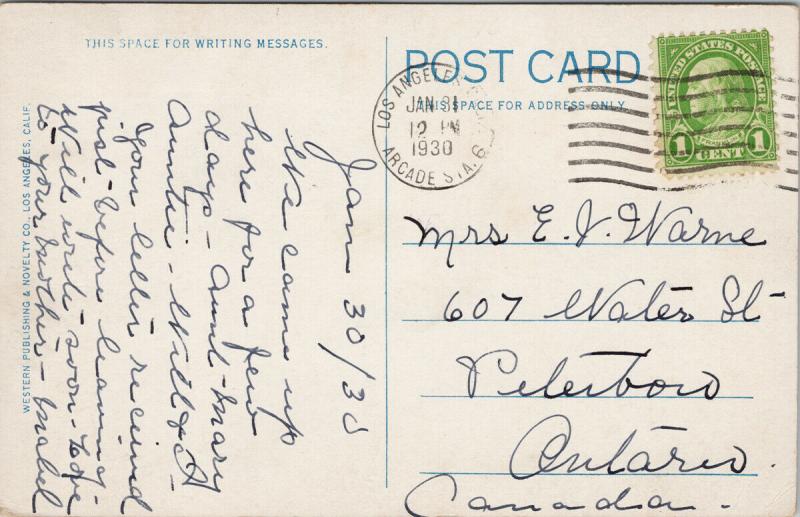 THIS SPACE FOR WRITING MESSAGES.
Jan 30/30
We came up
here for a few
days - Aunt Mary
Auntie - Will & A -
Your letter received
just before leaving -
Will write soon - Love
to your Mother - Mabel
WESTERN PUBLISHING & NOVELTY CO., LOS ANGELES, CALIF.
POST CARD
THIS SPACE FOR ADDRESS ONLY.
LOS ANGELES
JAN 31
12 PM
1930
ARCADE STA.
UNITED STATES POSTAGE
1 CENT 1
Mrs E. J. Warne
607 Water St
Peterboro
Ontario.
Canada.